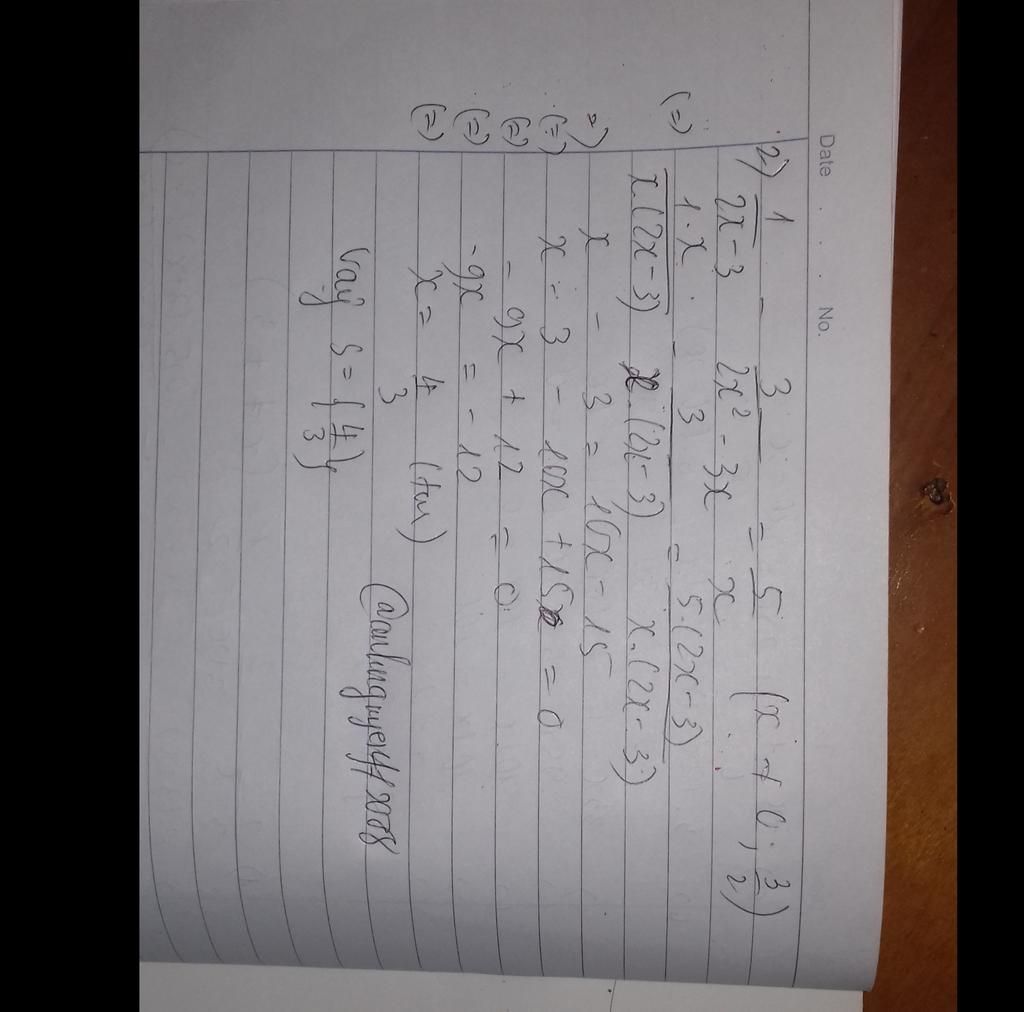 Date . . . No.
2) 1/(2x-3) - 3/(2x² - 3x) = 5/x (x ≠ 0; 3/2)
(=) 1.x/(x.(2x-3)) - 3/(x.(2x-3)) = 5.(2x-3)/(x.(2x-3))
=) x - 3 = 10x - 15
(=) x - 3 - 10x + 15 = 0
(=) - 9x + 12 = 0
(=) - 9x = - 12
(=) x = 4/3 (tm)
Vậy S = {4/3}